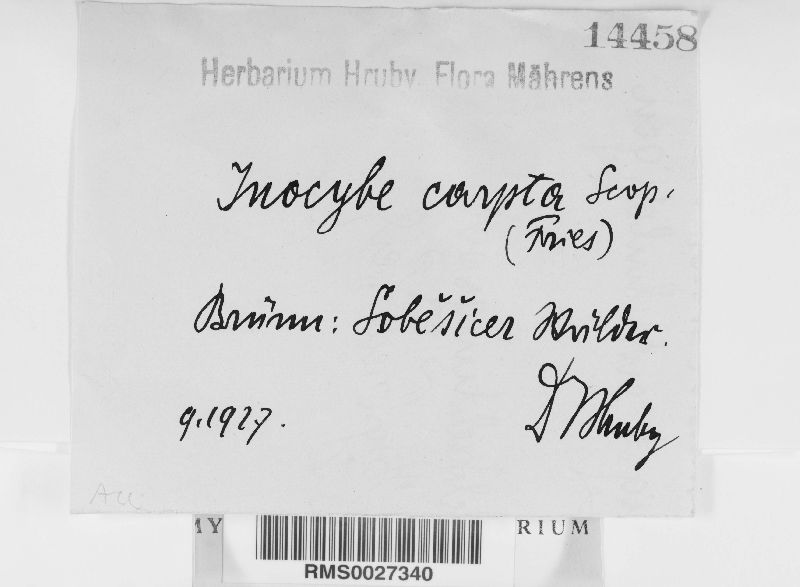 14458
Herbarium Hruby. Flora Mährens
Inocybe carpta Scop.
(Fries)
Brünn: Soběšicer Wälder.
9.1927.
Dr Hruby
MY RIUM
RMS0027340